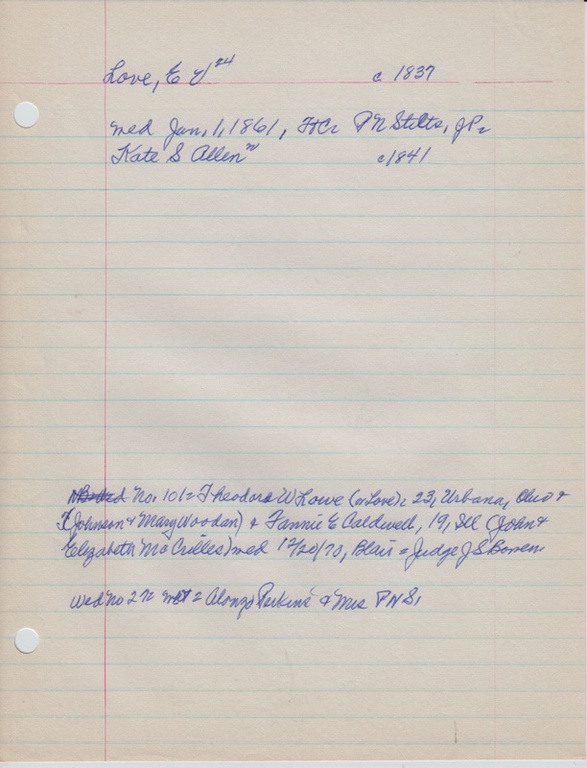 Love, E J 24 c 1837
med Jan, 1, 1861, FtC= P N Stilts, JP=
Kate S Allen 21 c1841
No. 101= Theodore W Lowe (or Love), 23, Urbana, Ohio =
(Johnson + Mary Woodan) + Fannie E Caldwell, 19, Ill (John +
Elizabeth McCrilles) med 12/20/70, Blair = Judge J S Bowen
Wed No 2 = Alonzo Perkins + Mrs P N S,